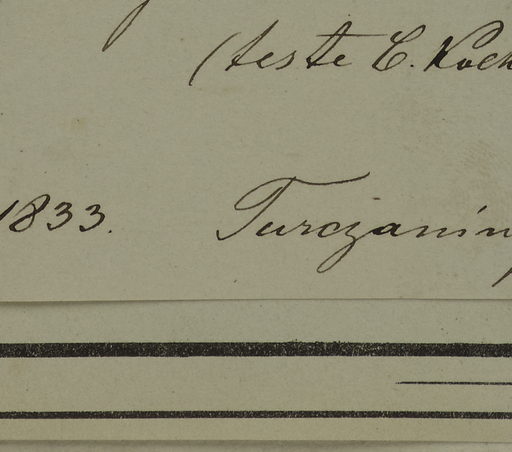 (teste C. Koch
1833. Turczanin